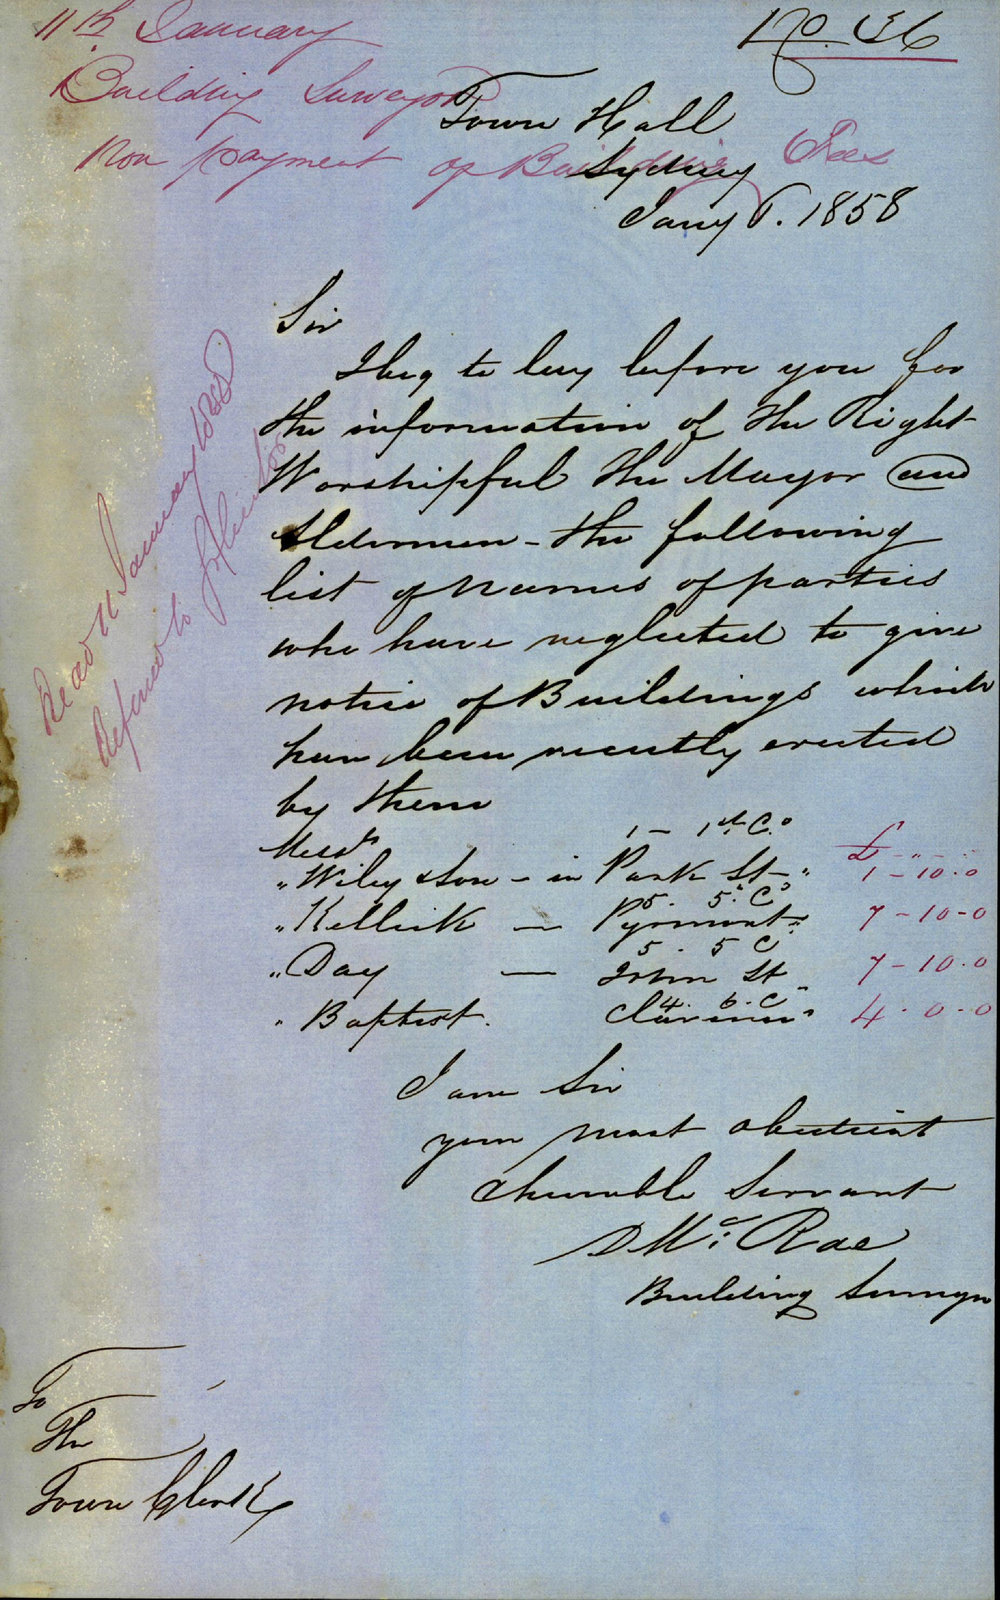 11th. January
No. 36
Building Surveyor
Non payment of Building Fees
Town Hall
Sydney
Jany 6. 1858
Sir
I beg to lay before you for
the information of the Right
Worshipful the Mayor and
Aldermen - the following
list of Names of parties
who have neglected to give
notice of Buildings which
have been recently erected
by them
Messrs
1 - 1st C.o
£ - " - :
" Wiley & Son - in Park St - "
1 - 10 . 0
5 . 5. Co
" Kellick — Pyrmont
7 - 10 - 0
5 . 5 C
" Day — John St
7 - 10 . 0
4 . 6 . C
" Baptist. Clarence "
4 . 0 . 0
I am Sir
your most obedient
humble Servant
D Mc. Rae
Building Surveyor
To
The
Town Clerk
Read 11 January 1858
Referred to